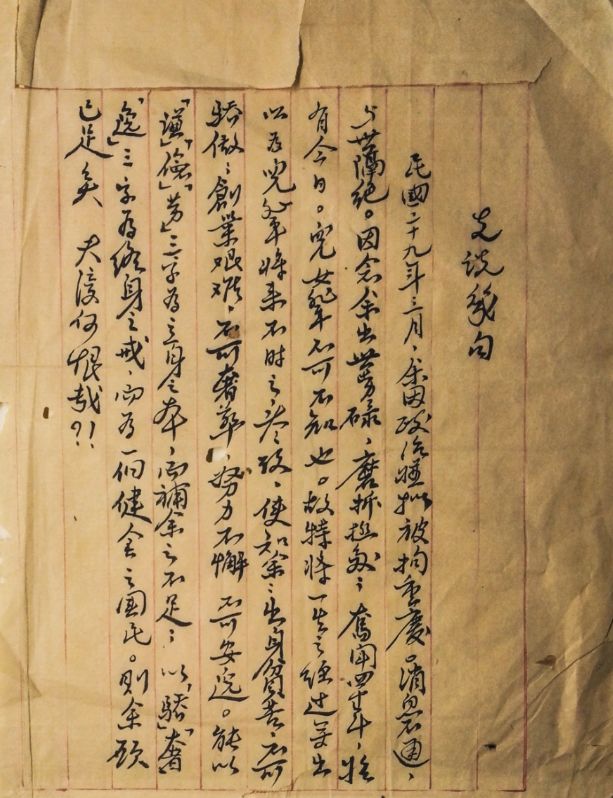 先说幾句
民國二十九年三月，余因政治嫌拟被拘重慶。消息不通，
与世隔绝。因念余出世劳碌，磨折極多；奮鬥四十年，始
有今日。兒女輩不可不知也。故特將一生之經过筆出
以為兒輩將来不时之參攷，使知余之出身貧苦，不可
驕傲；創業艰难，不可奢華；努力不懈 不可安逸。能以
「謙」「儉」「劳」三字為立身之本，而補余之不足；以「驕」「奢」
「逸」三字為終身之戒，而為一個健全之國民。則余願
已足矣 夫復何恨哉？！